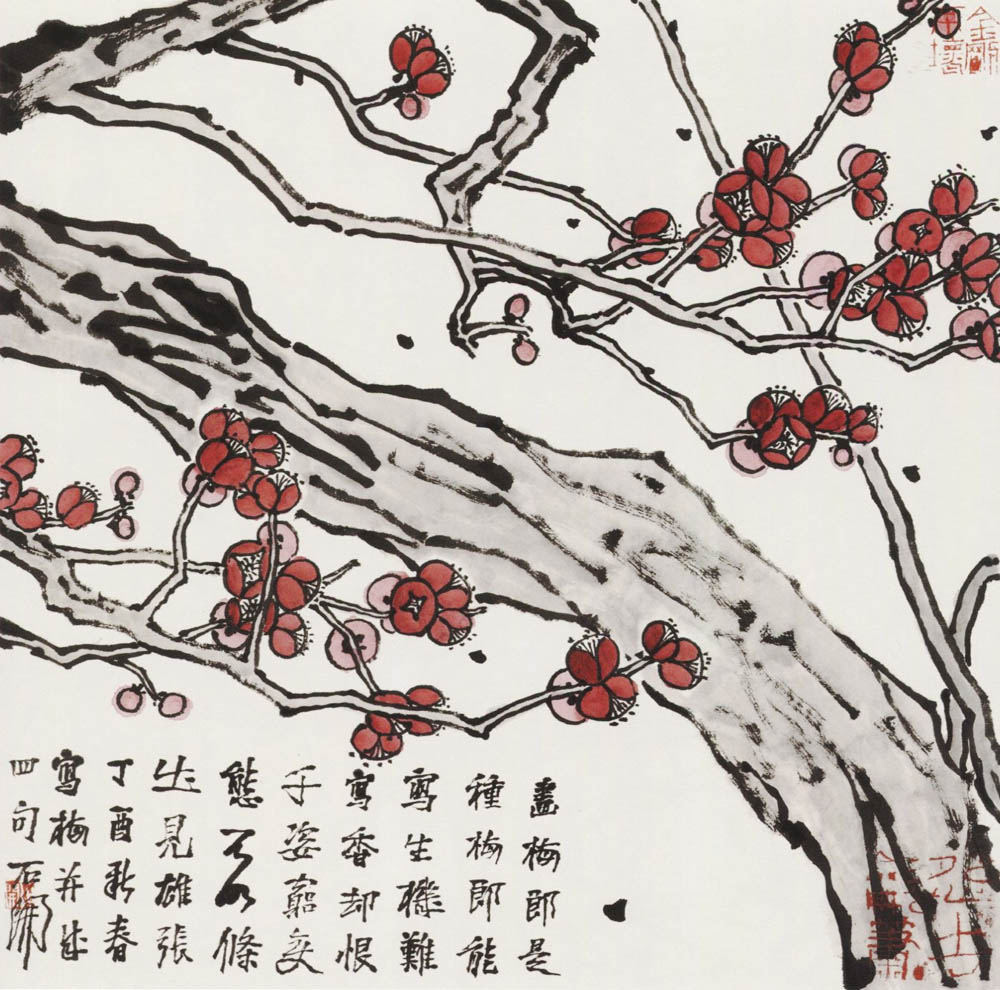 金剛
不壞
畫梅郎是
種梅郎能
寫生機難
寫香却恨
千姿窮變
態如條
出見雄張
丁酉新春
寫梅并成
四句石開